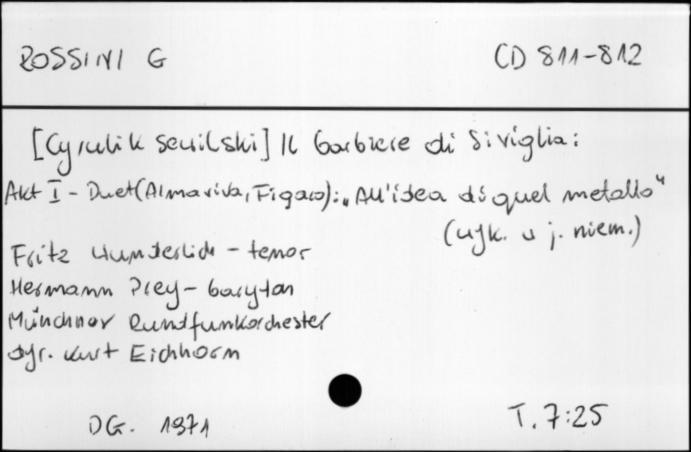 ROSSINI G
CD 811-812
[Cyrulik sewilski] Il barbiere di Siviglia:
Akt I - Duet (Almaviva, Figaro): „All'idea di quel metallo"
(wyk. w j. niem.)
Fritz Wunderlich - tenor
Hermann Prey - baryton
Münchner Rundfunkorchester
dyr. Kurt Eichhorn
DG. 1971
T. 7:25